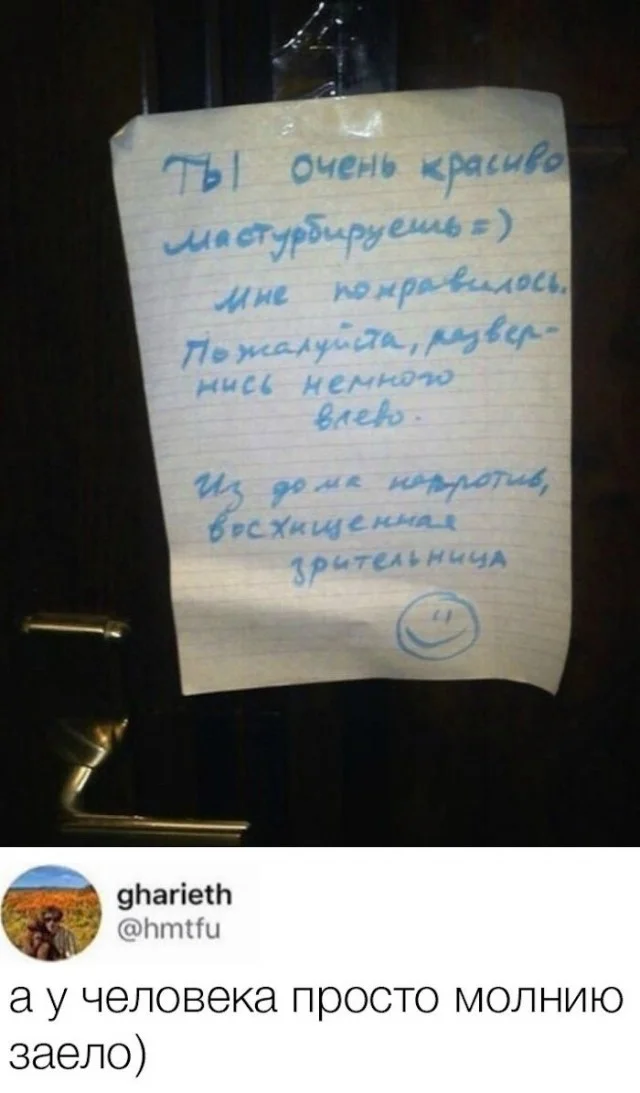 Ты очень красиво
мастурбируешь =)
Мне понравилось.
Пожалуйста, развер-
нись немного
влево.
Из дома напротив,
восхищенная
зрительница
gharieth
@hmtfu
а у человека просто молнию
заело)